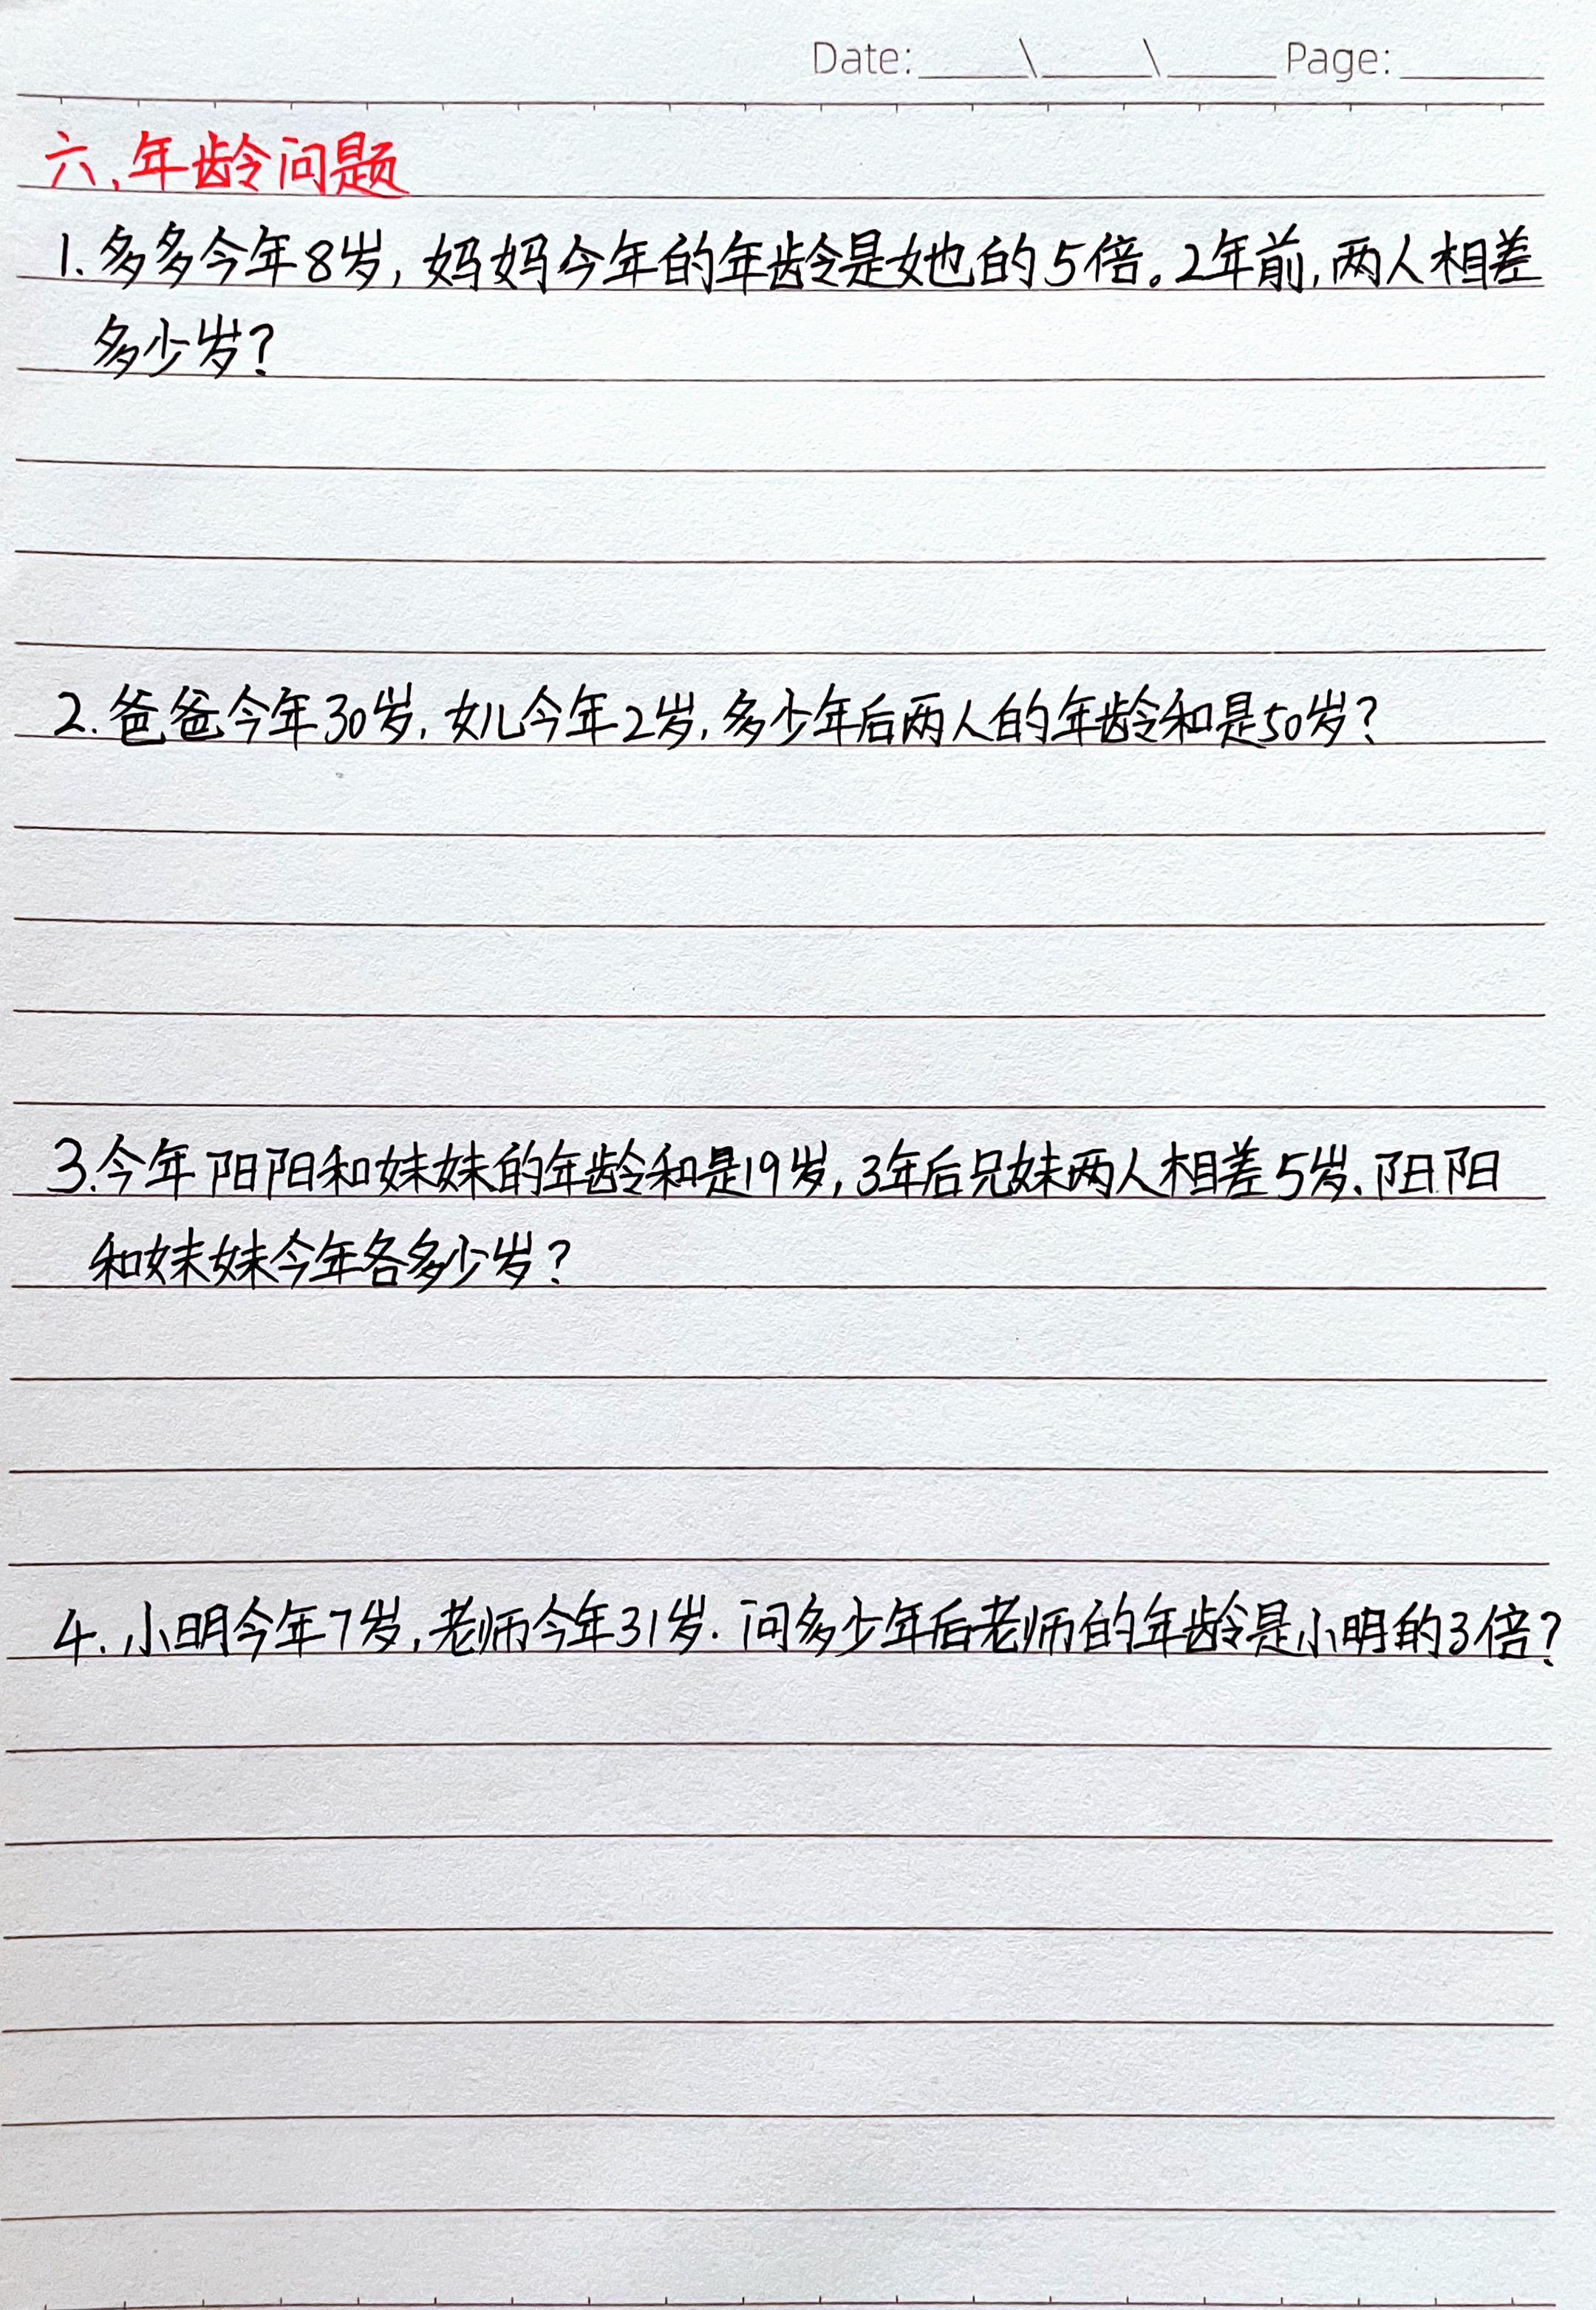 Date:____\____\____Page:_____
六、年龄问题
1. 多多今年8岁，妈妈今年的年龄是她的5倍。2年前，两人相差
多少岁？
2. 爸爸今年30岁，女儿今年2岁，多少年后两人的年龄和是50岁？
3.今年阳阳和妹妹的年龄和是19岁，3年后兄妹两人相差5岁、阳阳
和妹妹今年各多少岁？
4. 小明今年7岁，老师今年31岁. 问多少年后老师的年龄是小明的3倍？